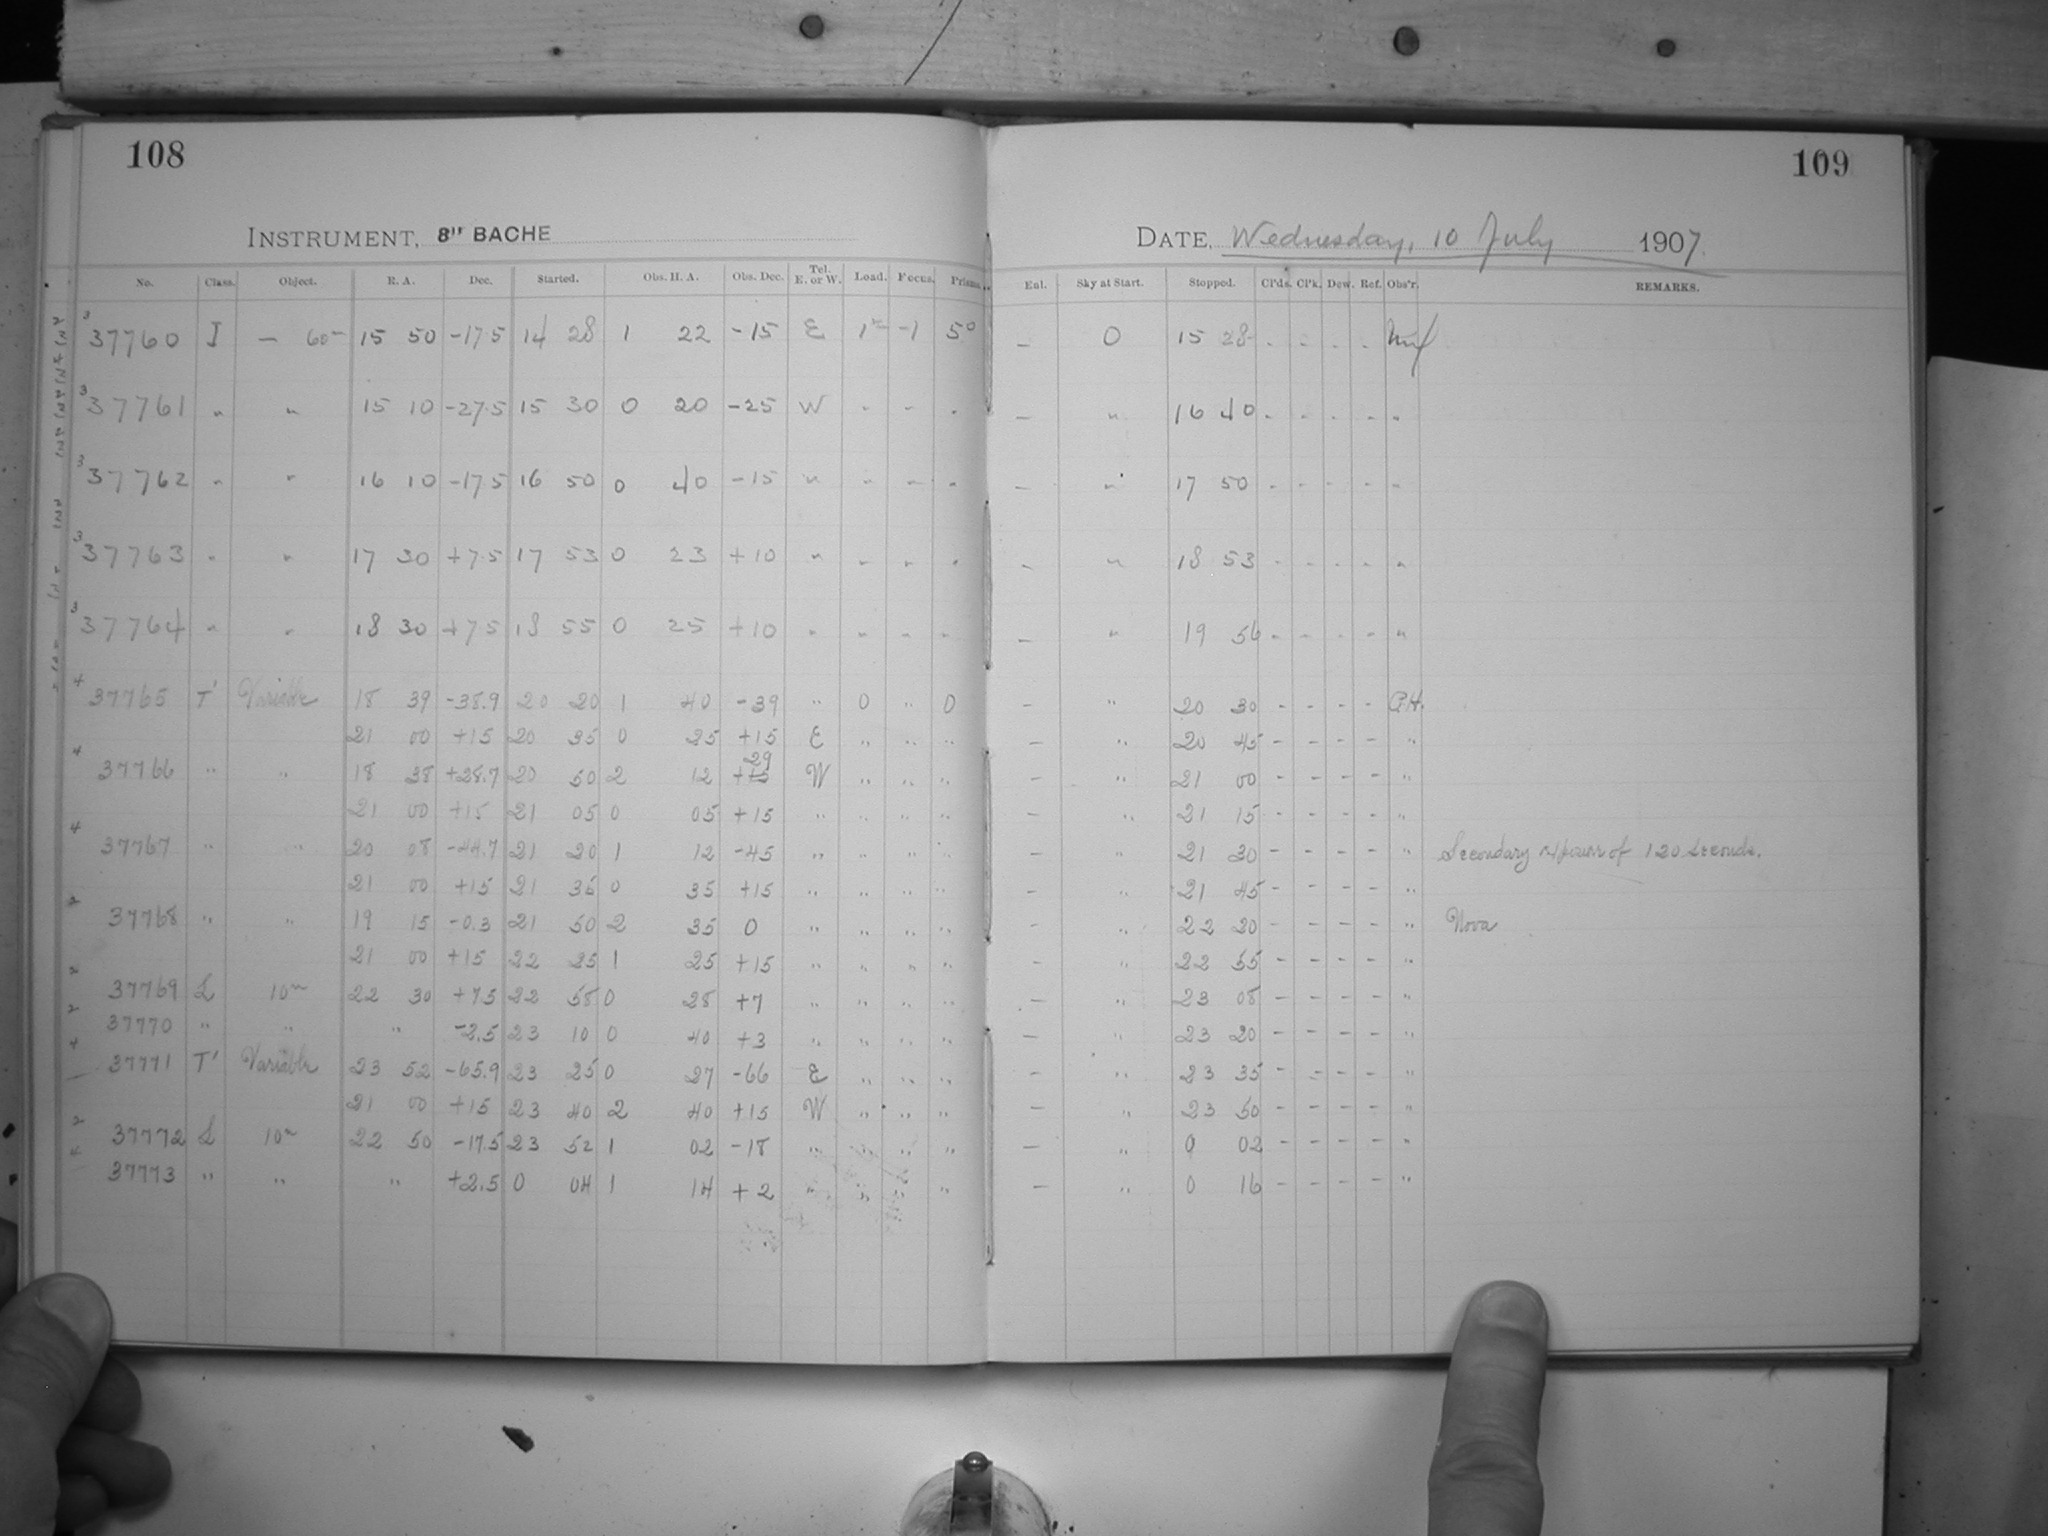 108
109
INSTRUMENT, 8" BACHE
DATE, Wednesday, 10 July 1907.
No. Class. Object. R. A. Dec. Started. Obs. H. A. Obs. Dec. Tel. E. or W. Load. Focus. Prisms. Enl. Sky at Start. Stopped. Cl'ds. Cl'k. Dew. Ref. Obs'r. REMARKS.
3 37760 I — 60m 15 50 -17.5 14 28 1 22 -15 E -1 50 — 0 15 28 - - - -
3 37761 " " 15 10 -27.5 15 30 0 20 -25 W - - - — " 16 40 - - - - "
3 37762 " " 16 10 -17.5 16 50 0 40 -15 " " - " — " 17 50 - - - - "
3 37763 " " 17 30 +7.5 17 53 0 23 +10 " " " " — " 18 53 - - - - "
3 37764 " " 18 30 +7.5 18 55 0 25 +10 " " " " — " 19 56 - - - - "
4 37765 T' Variable 18 39 -38.9 20 20 1 40 -39 " 0 " 0 — " 20 30 - - - -
21 00 +15 20 35 0 25 +15 E " " " — " 20 45 - - - - "
4 37766 " " 18 38 +28.7 20 50 2 12 +15 29 W " " " — " 21 00 - - - - "
21 00 +15 21 05 0 05 +15 " " " " — " 21 15 - - - - "
4 37767 " " 20 08 -44.7 21 20 1 12 -45 " " " " — " 21 30 - - - - " Secondary of 120 seconds.
21 00 +15 21 35 0 35 +15 " " " " — " 21 45 - - - - "
37768 " " 19 15 -0.3 21 50 2 35 0 " " " " — " 22 20 - - - - " Nova
21 00 +15 22 25 1 25 +15 " " " " — " 22 55 - - - - "
37769 L 10m 22 30 +7.5 22 58 0 28 +7 " " " " — " 23 08 - - - - "
37770 " " " -2.5 23 10 0 40 +3 " " " " — " 23 20 - - - - "
37771 T' Variable 23 52 -65.9 23 25 0 27 -66 E " " " — " 23 35 - - - - "
21 00 +15 23 40 2 40 +15 W " " " — " 23 50 - - - - "
37772 L 10m 22 50 -17.5 23 52 1 02 -18 " " " " — " 0 02 - - - - "
37773 " " " +2.5 0 04 1 14 +2 " " " — " 0 16 - - - - "